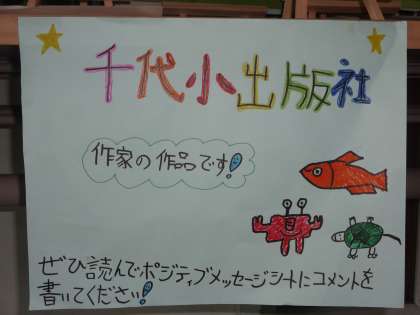 千代小出版社
作家の作品です!
ぜひ読んでポジティブメッセージシートにコメントを
書いてください!